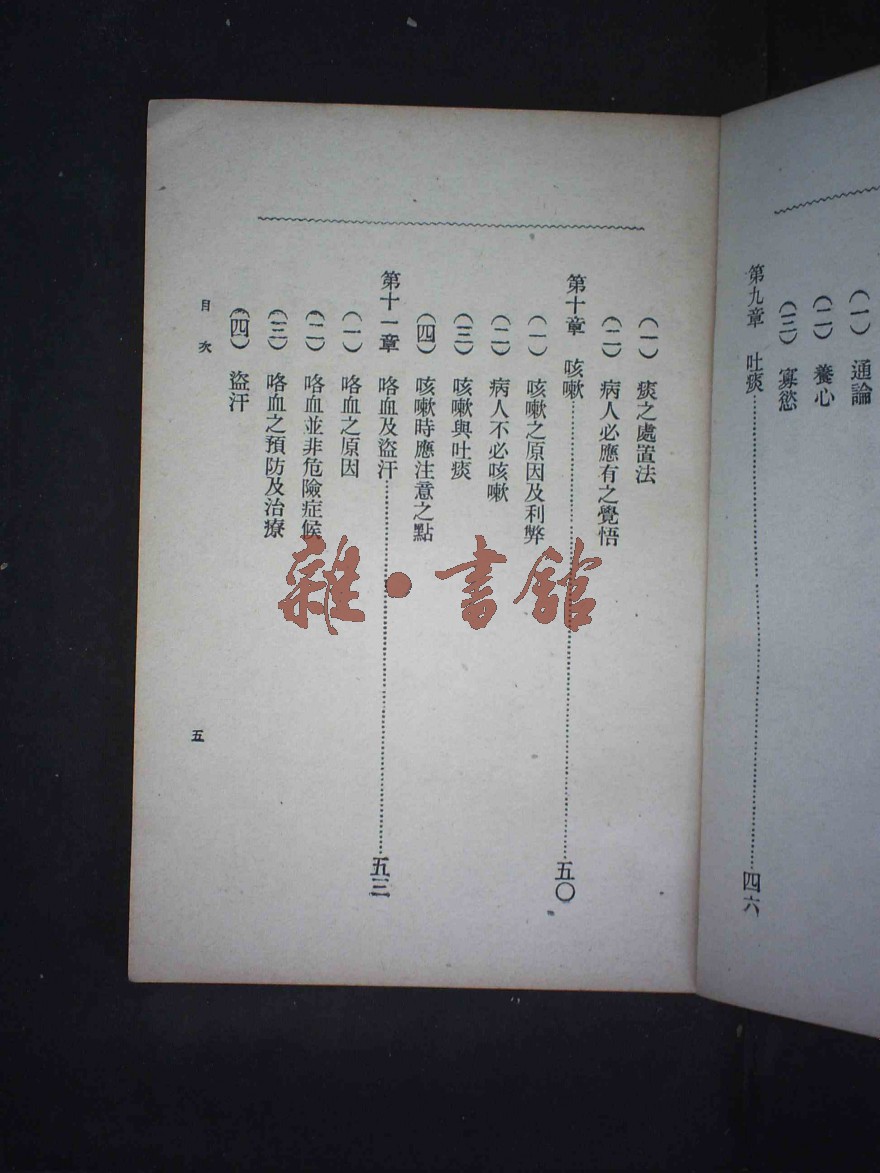 （一）　通論
（二）　養心
（三）　寡慾
第九章　吐痰……四六
（一）　痰之處置法
（二）　病人必應有之覺悟
第十章　咳嗽……五〇
（一）　咳嗽之原因及利弊
（二）　病人不必咳嗽
（三）　咳嗽與吐痰
（四）　咳嗽時應注意之點
第十一章　咯血及盜汗……五三
（一）　咯血之原因
（二）　咯血並非危險症候
（三）　咯血之預防及治療
（四）　盜汗
目次
五
雜·書館